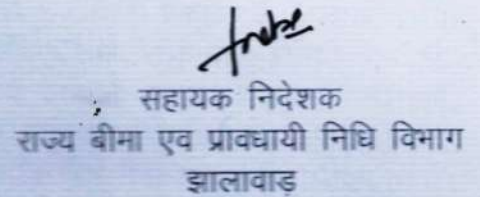 सहायक निदेशक
राज्य बीमा एव प्रावधायी निधि विभाग
झालावाड़